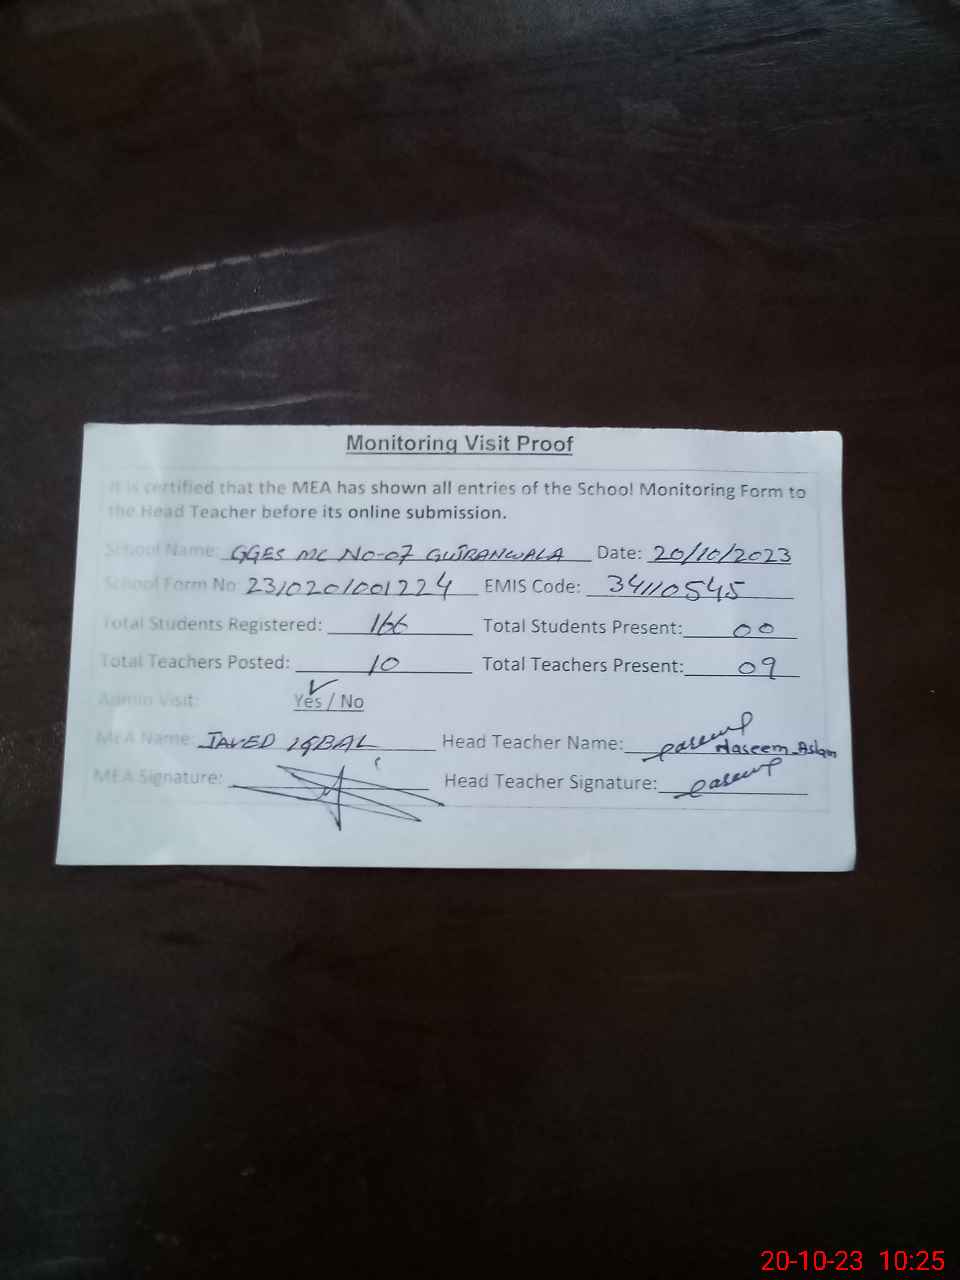 Monitoring Visit Proof
It is certified that the MEA has shown all entries of the School Monitoring Form to
the Head Teacher before its online submission.
School Name: GGES MC NO-07 GUJRANWALA Date: 20/10/2023
School Form No: 2310201001224 EMIS Code: 34110545
Total Students Registered: 166 Total Students Present: 00
Total Teachers Posted: 10 Total Teachers Present: 09
Admin Visit: Yes / No
MEA Name: JAVED IQBAL Head Teacher Name: Naseem Aslam
MEA Signature: Head Teacher Signature:
20-10-23 10:25